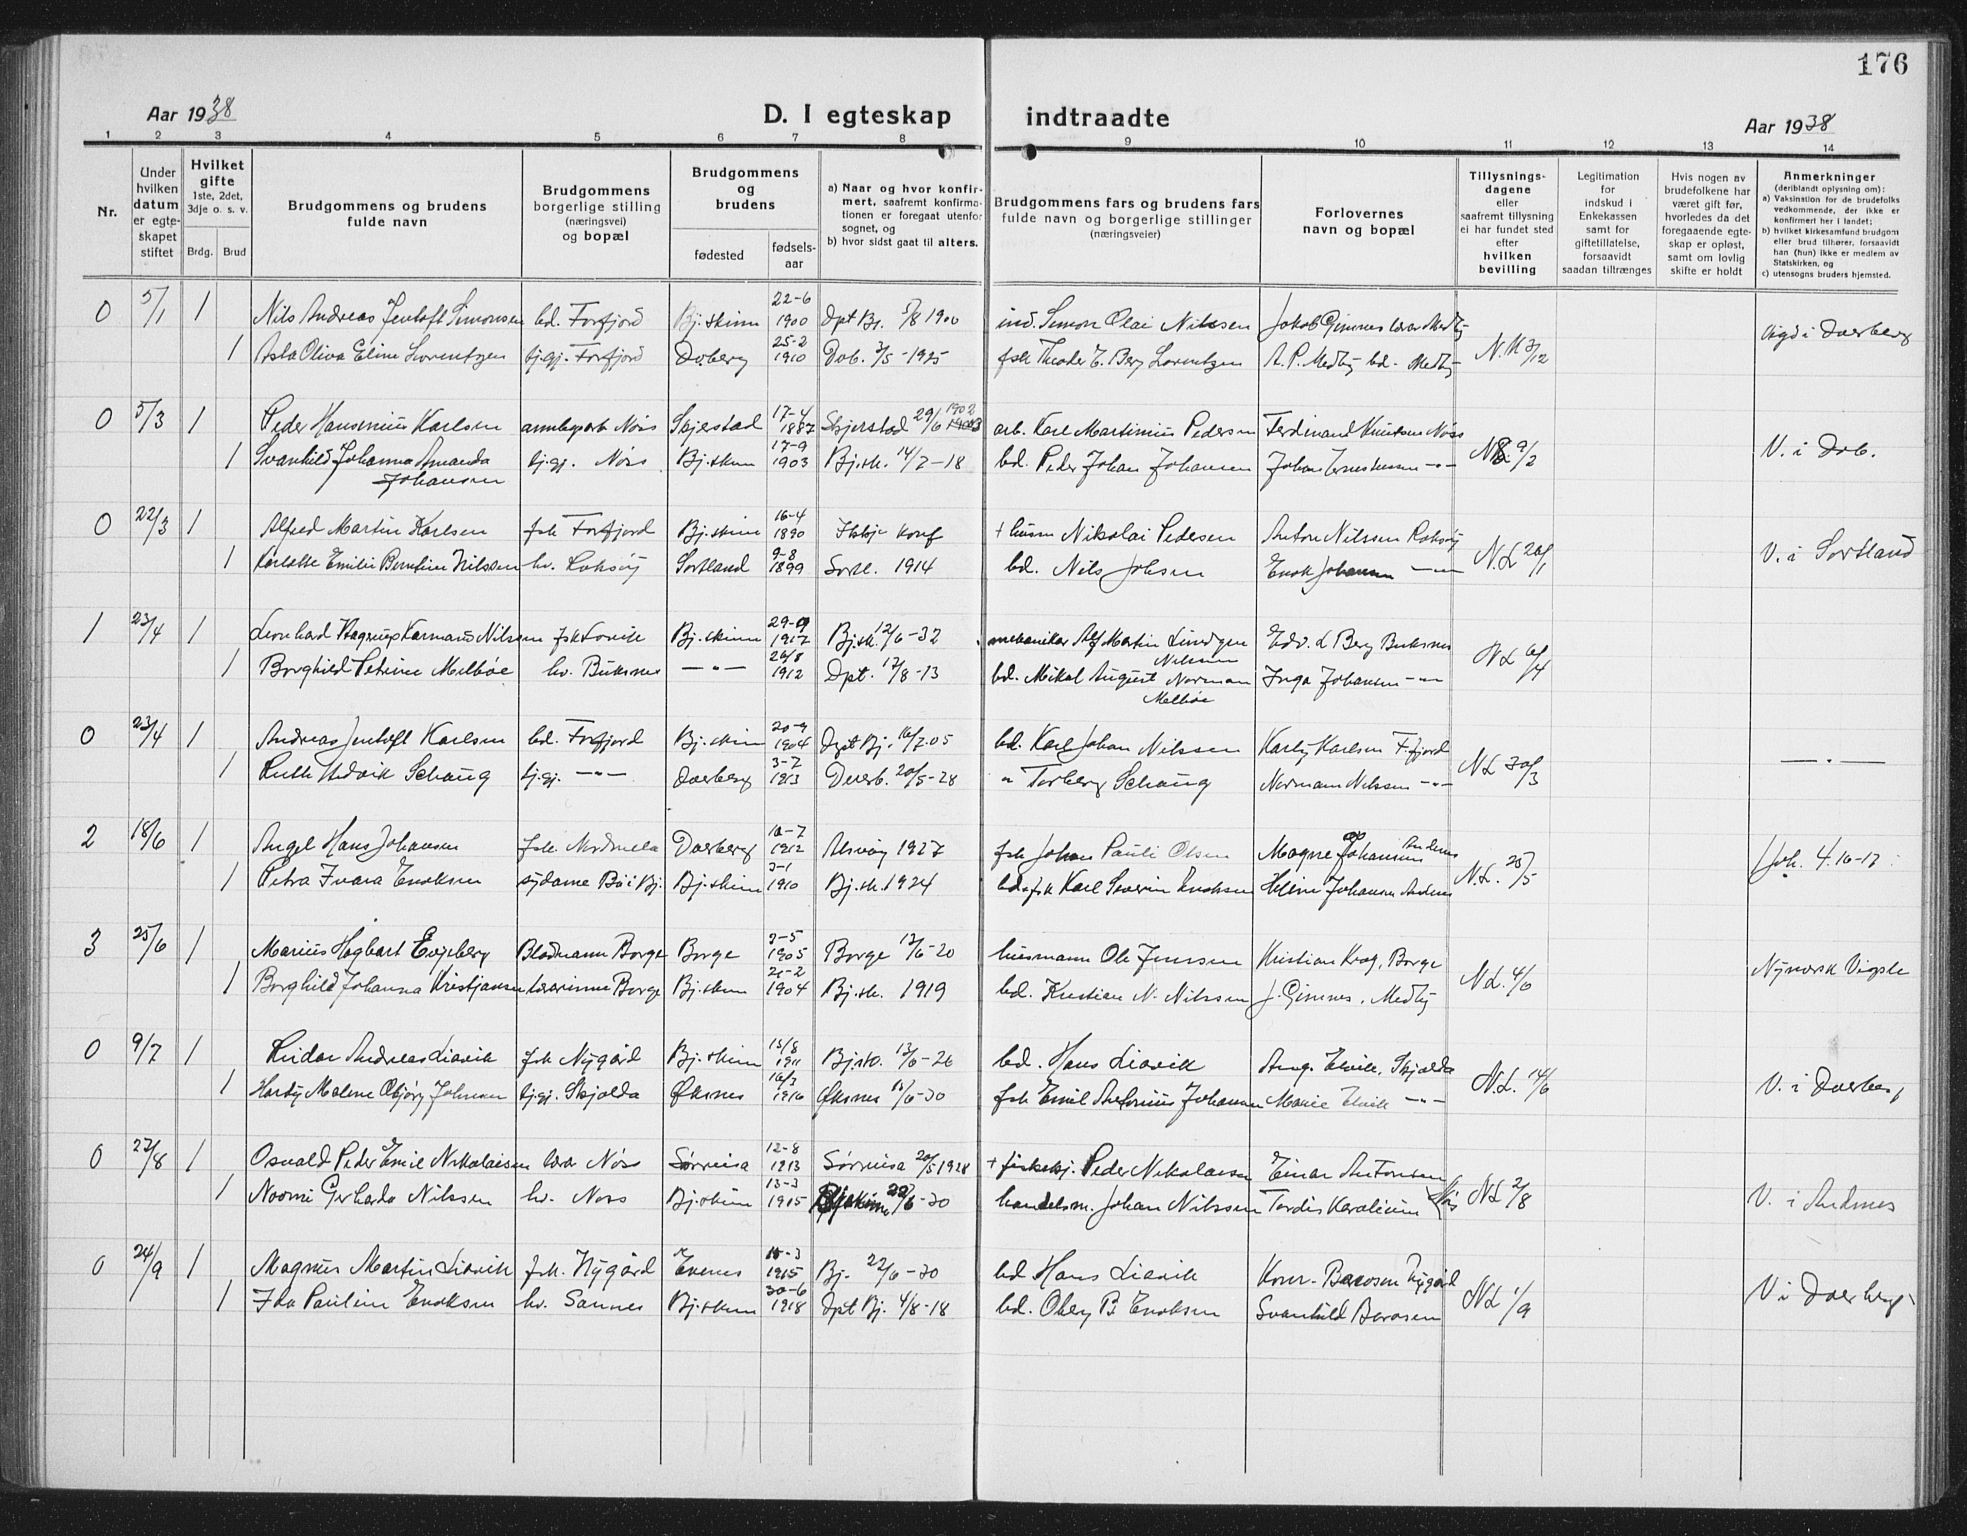 176
Aar 1938
D. I egteskap indtraadte
Aar 1938
1 2 3 4 5 6 7 8 9 10 11 12 13 14
Nr.
Under hvilken datum er egte-skapet stiftet
Hvilket gifte 1ste, 2det, 3dje o. s. v.
Brdg. Brud
Brudgommens og brudens fulde navn
Brudgommens borgerlige stilling (næringsvei) og bopæl
Brudgommens og brudens
fødested
fødsels-aar
a) Naar og hvor konfir-mert, saafremt konfirma-tionen er foregaat utenfor sognet, og
b) hvor sidst gaat til alters.
Brudgommens fars og brudens fars fulde navn og borgerlige stillinger (næringsveier)
Forlovernes navn og bopæl
Tillysnings-dagene eller saafremt tillysning ei har fundet sted efter hvilken bevilling
Legitimation for indskud i Enkekassen samt for giftetillatelse, forsaavidt saadan tiltrænges
Hvis nogen av brudefolkene har været gift før, hvorledes da det foregaaende egte-skap er opløst, samt om lovlig skifte er holdt
Anmerkninger (deriblandt oplysning om):
a) Vaksination for de brudefolks vedkommende, der ikke er konfirmert her i landet;
b) hvilket kirkesamfund brudgom eller brud tilhører, forsaavidt han (hun) ikke er medlem av Statskirken, og
c) utensogns bruders hjemsted.
0 5/1 1 Nils Andreas Jentoft Simonsen bd. Forfjord Bj.skinn 22-6 1900 Dpt Bj. 5/8 1900 ind. Simon Olai Nilssen Jakob Gimnes lærer Medby
1 Asta Oliva Eline Lorentzen tj.gj. Forfjord Dverberg 25-2 1910 Dvb. 3/5-1925 fsk Theodor E. Berg Lorentzen A. P. Medby bd. Medby N.L. 3/12 Vigd i Dverberg
0 5/3 1 Peder Hansenius Karlsen Nøss Skjerstad 17-4 1887 Skjerstad 29/6 1902 arb. Karl Martinius Pedersen Ferdinand Knutsen Nøss
1 Svanhild Johanna Amanda Johansen tj.gj. Nøss Bj.skinn 17-9 1903 Bj.sk. 14/7-18 bd. Peder Johan Johansen Johan -"- N.L. 9/2 V. i Dvb.
0 22/3 1 Alfred Martin Karlsen fsk Forfjord Bj.skinn 16-4 1890 Ikkje konf + husm Nikolai Pedersen Anton Nilssen Roksøy
1 Emilie Nilssen hv. Roksøy Sortland 9-8 1899 Sortl. 1914 bd. Nils Johsen Enok Johansen -"- N.L. 20/1 V. i Sortland
1 23/4 1 Leonhard Hagrup Karmann Nilssen fsk Lovik Bj.skinn 29-9 1917 Bj.sk. 12/6-32 mekaniker Alf Martin Lundgren Nilssen Edv. L Berg Buksnes
1 Borghild Petrine Melbøe hv. Buksnes -"- 26/8 1912 Dpt. 17/8-13 bd. Mikal August Norman Melbøe Inga Johansen -"- N.L. 6/4
0 23/4 1 Andreas Jentoft Karlsen bd. Forfjord Bj.skinn 20-9 1904 Dpt Bj. 16/7-05 bd. Karl Johan Nilssen Karly Karlsen F.fjord
1 Ruth Hedvik Schaug tj.gj. -"- Dverberg 3-7 1913 Dverb. 20/5-28 " Torberg Schaug Normann Nilssen -"- N.L. 30/3 -"-
2 18/6 1 Angel Hans Johansen fsk. Nordmela Dverberg 10-7 1912 Alsvåg 1927 fsk Johan Pauli Olsen Magne Johansen Andenes
1 Petra Ivara Enoksen sydame Bø i Bj. Bj.skinn 3-1 1910 Bj.sk. 1924 bd. fsk Karl Severin Enoksen Heline Johansen Andenes N.L. 25/5 Joh. 4.16-17
3 25/6 1 Marius Hagbart Evjeberg Bladmann Borge Borge 3-5 1905 Borge 13/6-20 husmann Ole Jenssen Kristian Krog, Borge
1 Borghild Johanna Kristjansen lærerinne Borge Bj.skinn 21-2 1904 Bj.sk. 1919 bd. Kristian N. Nilssen J. Gimnes, Medby N.L. 4/6 Nynorsk Vigsle
0 9/7 1 Reidar Andreas Liavik fsk Nygård Bj.skinn 15/8 1911 Bj.sk. 13/6-26 bd. Hans Liavik Aug. Elvik, Skjolda
1 Hardy Malene Johansen tj.gj. Skjolda Øksnes 16/3 1916 Øksnes 15/6-30 fsk Emil Antonius Johansen Marie Elvik -"- N.L. 14/6 V. i Dverberg
0 27/8 1 Osvald Peder Emil Nikolaisen lærer Nøss Sørreisa 12-8 1913 Sørreisa 20/5 1928 + fiskekj. Peder Nikolaisen Einar Antonsen
1 Noomi Gerharda Nilssen hv. Nøss Bj.skinn 13-3 1915 Bjøskinn 22/6-30 handelsm. Johan Nilssen Tordis Karolius Nøss N.L. 2/8 V. i Andenes
0 24/9 1 Magnus Martin Liavik fsk. Nygård Evenes 15-3 1915 Bj. 22/6-30 bd Hans Liavik Konr. Barosen Nygård
1 Ida Pauline Enoksen hv. Sannes Bj.skinn 30-6 1918 Dpt Bj. 4/8-18 bd. Oberg B Enoksen Svanhild Barosen N.L. 1/9 V i Dverberg